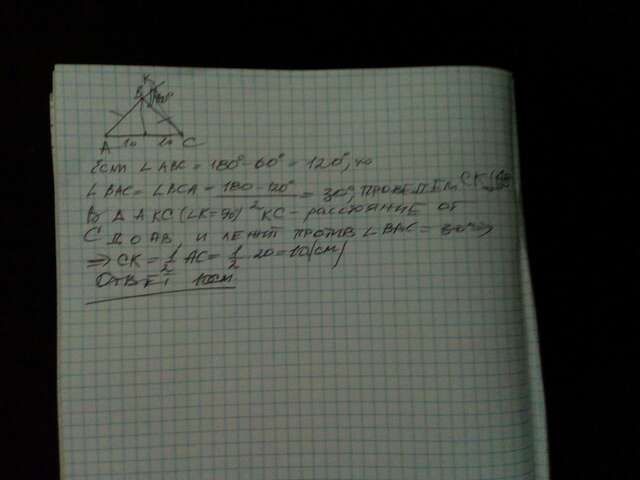 K
B 60°
A 10 10 C
Если ∠ABC = 180° - 60° = 120°, то
∠BAC = ∠BCA = 180 - 120° / 2 = 30°, ПРОВЕДЕМ CK
В Δ AKC (∠K = 90) KC - расстояние от
C ДО AB, И ЛЕЖИТ ПРОТИВ ∠BAC = 30°
⇒ CK = 1/2 AC = 1/2 20 = 10 (см)
Ответ: 10см